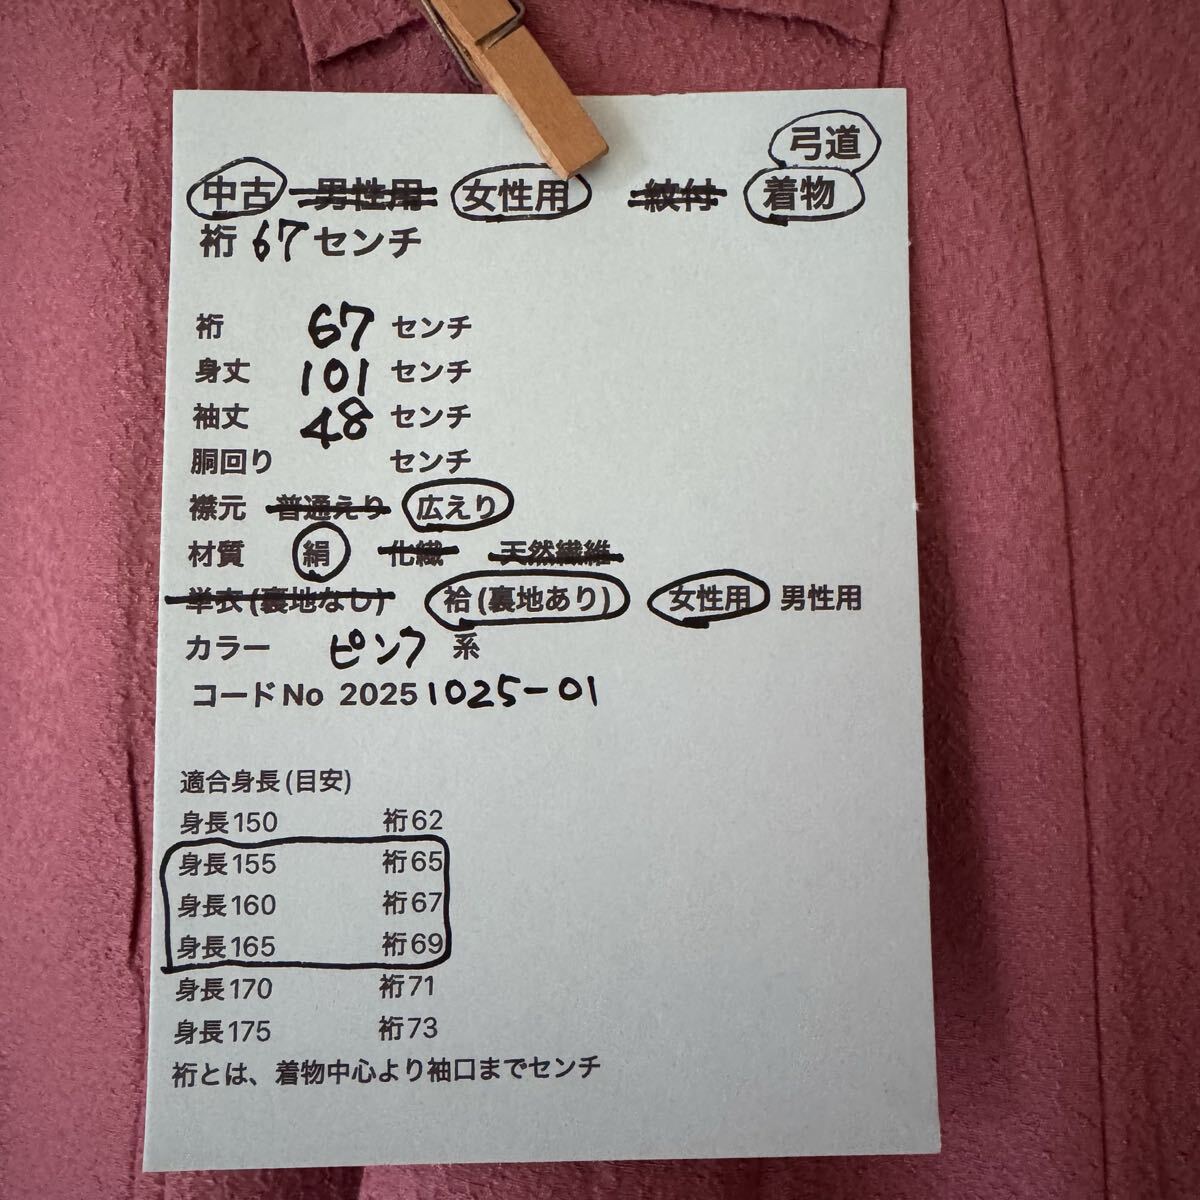 弓道
中古 男性用 女性用 紋付 着物
裄 67 センチ
裄 67 センチ
身丈 101 センチ
袖丈 48 センチ
胴回り センチ
襟元 普通えり 広えり
材質 絹 化繊 天然繊維
単衣(裏地なし) 袷(裏地あり) 女性用 男性用
カラー ピンク 系
コードNo 20251025-01
適合身長(目安)
身長150 裄62
身長155 裄65
身長160 裄67
身長165 裄69
身長170 裄71
身長175 裄73
裄とは、着物中心より袖口までセンチ